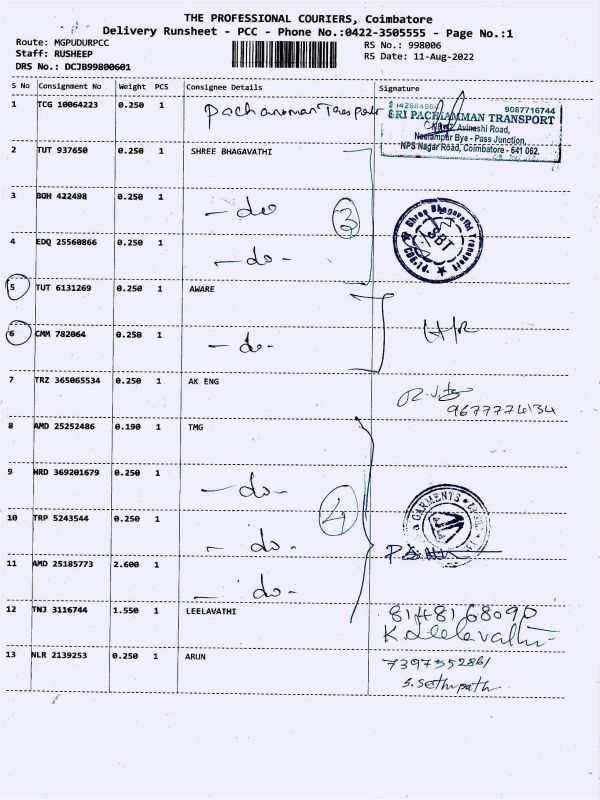 THE PROFESSIONAL COURIERS, Coimbatore
Delivery Runsheet - PCC - Phone No.:0422-3505555 - Page No.:1
Route: MGPUDURPCC
RS No.: 998006
Staff: RUSHEEP
RS Date: 11-Aug-2022
DRS No.: DCJB99800601
S No Consignment No Weight PCS Consignee Details Signature
1 TCG 10064223 0.250 1
9087716744
SRI PACHAMMAN TRANSPORT
Avinashi Road,
Neelampur Bye - Pass Junction,
NPS Nagar Road, Coimbatore - 641 062.
2 TUT 937650 0.250 1 SHREE BHAGAVATHI
3 BOH 422498 0.250 1 - do 3
Shree Bhagavathi Transport
SBT
4 EDQ 25560866 0.250 1 - do -
5 TUT 6131269 0.250 1 AWARE
6 CMM 782064 0.250 1 - do -
7 TRZ 365065534 0.250 1 AK ENG
8 AMD 25252486 0.190 1 TMG
9 HRD 369201679 0.250 1 - do -
4
GARMENTS
10 TRP 5243544 0.250 1 - do -
11 AMD 25185773 2.600 1 - do -
12 TNJ 3116744 1.550 1 LEELAVATHI 8148168090
K Leelavathi
13 NLR 2139253 0.250 1 ARUN 7397552861
S. Sethupathi